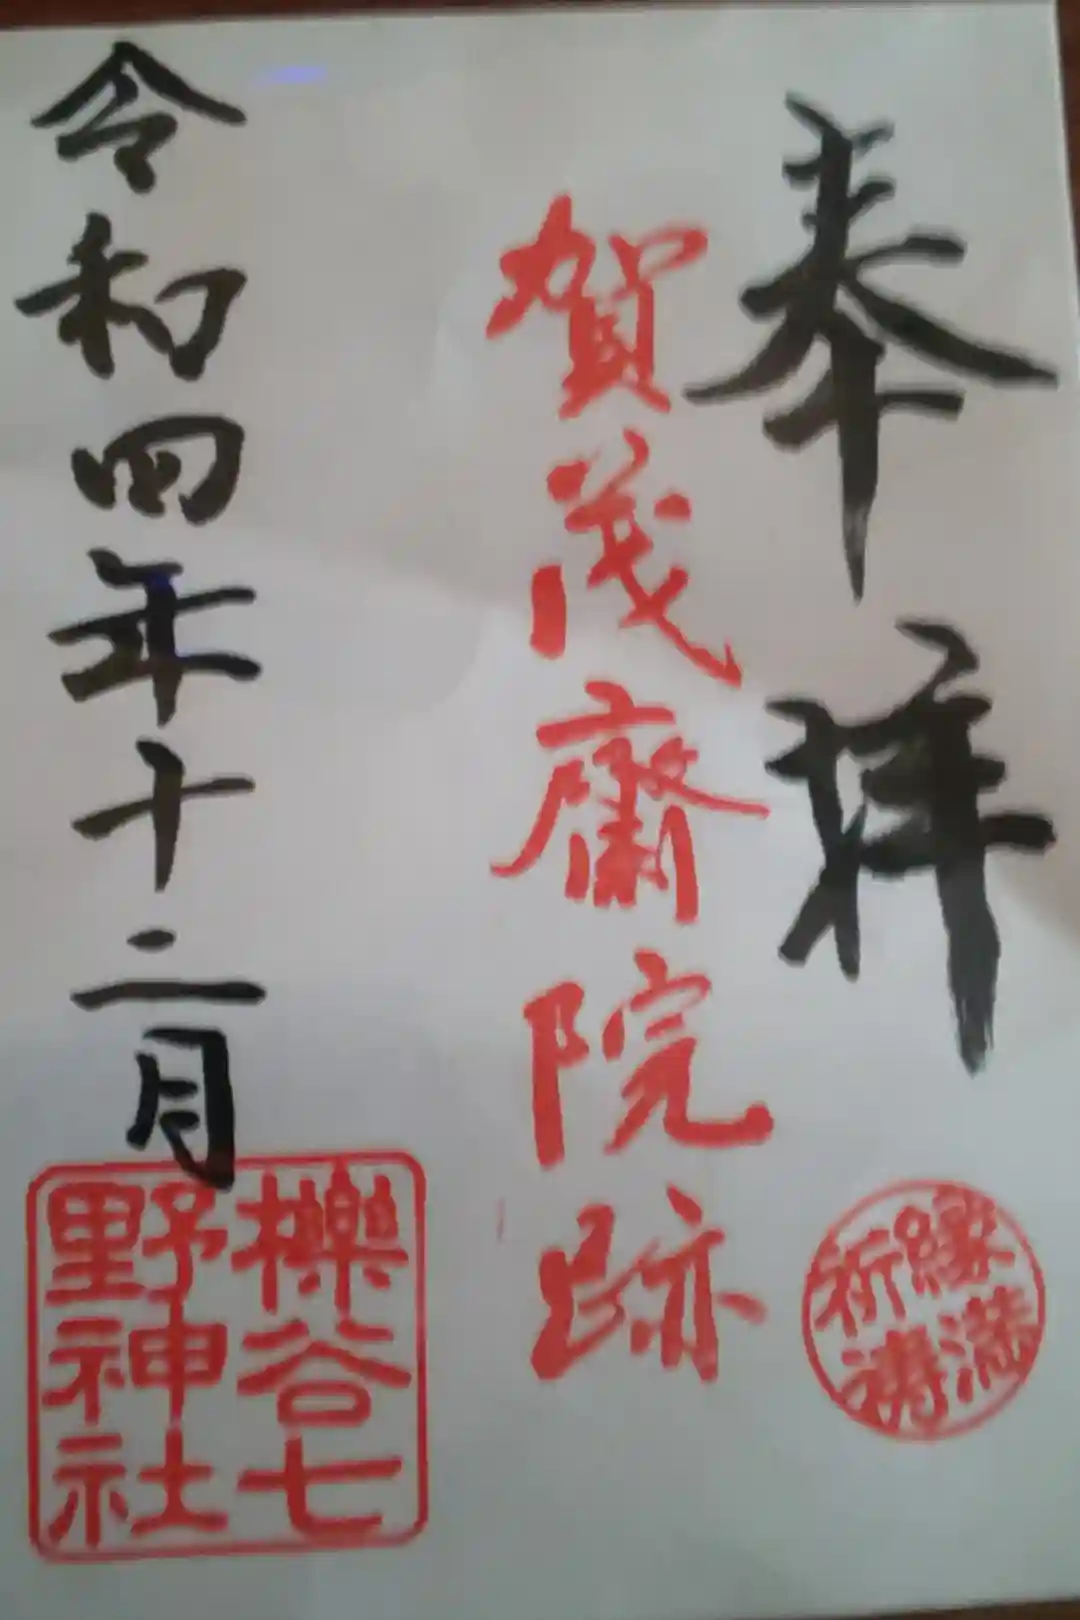 奉拝
縁満
祈祷
賀茂齋院跡
令和四年十二月
櫟谷七
野神社